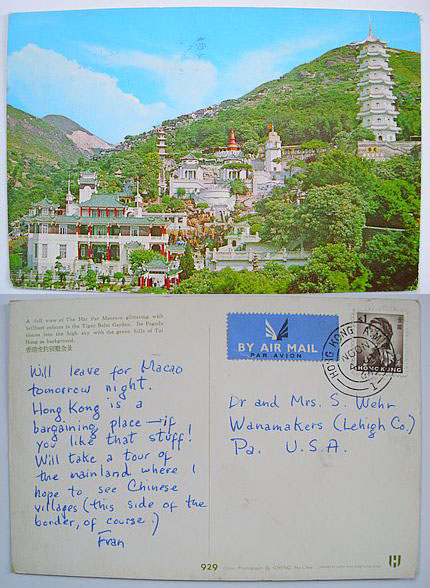 A full view of The Haw Par Mansion glittering with
brilliant colours in the Tiger Balm Garden. Its Pagoda
shoots into the high sky with the green hills of Tai
Hang as background.
Will leave for Macao
tomorrow night.
Hong Kong is a
bargaining place — if
you like that stuff!
Will take a tour of
the mainland where I
hope to see Chinese
villages (this side of the
border, of course.)
Fran
BY AIR MAIL
PAR AVION
HONG KONG
1
HONG KONG
Dr and Mrs. S. Wehr
Wanamakers (Lehigh Co.)
Pa. U.S.A.
929 Color Photograph By CHENG